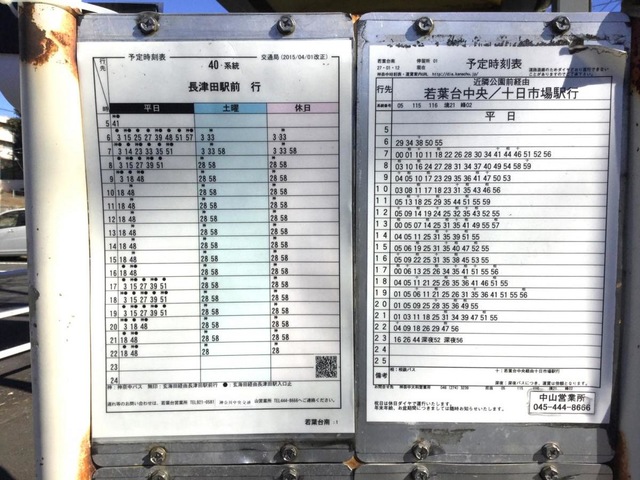 予定時刻表
交通局 (2015/04/01改正)
行先
40 系統
長津田駅前 行
時 平日 土曜 休日
5 41
6 3 15 25 27 39 48 51 57 3 33 3 33
7 3 14 23 33 35 51 3 33 58 3 33 58
8 3 15 27 39 51 28 58 28 58
9 3 18 48 28 58 28 58
10 18 48 28 58 28 58
11 18 48 28 58 28 58
12 18 48 28 58 28 58
13 18 48 28 58 28 58
14 18 48 28 58 28 58
15 18 48 28 58 28 58
16 18 48 28 58 28 58
17 3 15 27 39 51 28 58 28 58
18 3 15 27 39 51 28 58 28 58
19 3 15 27 39 51 28 58 28 58
20 3 18 48 28 58 28 58
21 18 48 28 58 28 58
22 18 48 28 28
23
24
若葉台南 :1
若葉台南
27-01-12
停留所 01
予定時刻表
行先
近隣公園前経由
若葉台中央/十日市場駅行
05 115 116 溝21 峰02
平日
5
6 29 34 38 50 55
7 00 01 10 11 18 22 26 28 30 34 41 44 46 51 52 56
8 03 10 16 24 27 28 31 34 37 40 49 54 58 59
9 04 05 10 17 23 29 35 36 41 47 50 53
10 03 08 11 17 18 23 31 35 43 46 56
11 05 13 18 25 29 35 44 51 55 59
12 05 09 14 19 24 25 32 35 43 52 55
13 00 05 07 14 25 31 35 41 49 55 57
14 04 05 11 25 31 35 39 51 55
15 05 06 19 25 31 35 40 47 52 55
16 05 09 22 25 31 35 38 45 53 55
17 00 06 13 25 26 34 35 41 51 55 56
18 04 05 11 21 25 26 35 36 41 46 51 55
19 01 05 06 11 21 25 26 31 35 36 41 51 55 56
20 01 05 09 25 28 35 36 49 55
21 01 03 11 18 25 31 34 39 47 51 55
22 04 09 18 26 29 47 56
23 16 26 44 深夜52 深夜56
24
25
備考
祝日は休日ダイヤで運行いたします。
年末年始、お盆期間につきましては臨時お知らせいたします。
中山営業所
045-444-8666